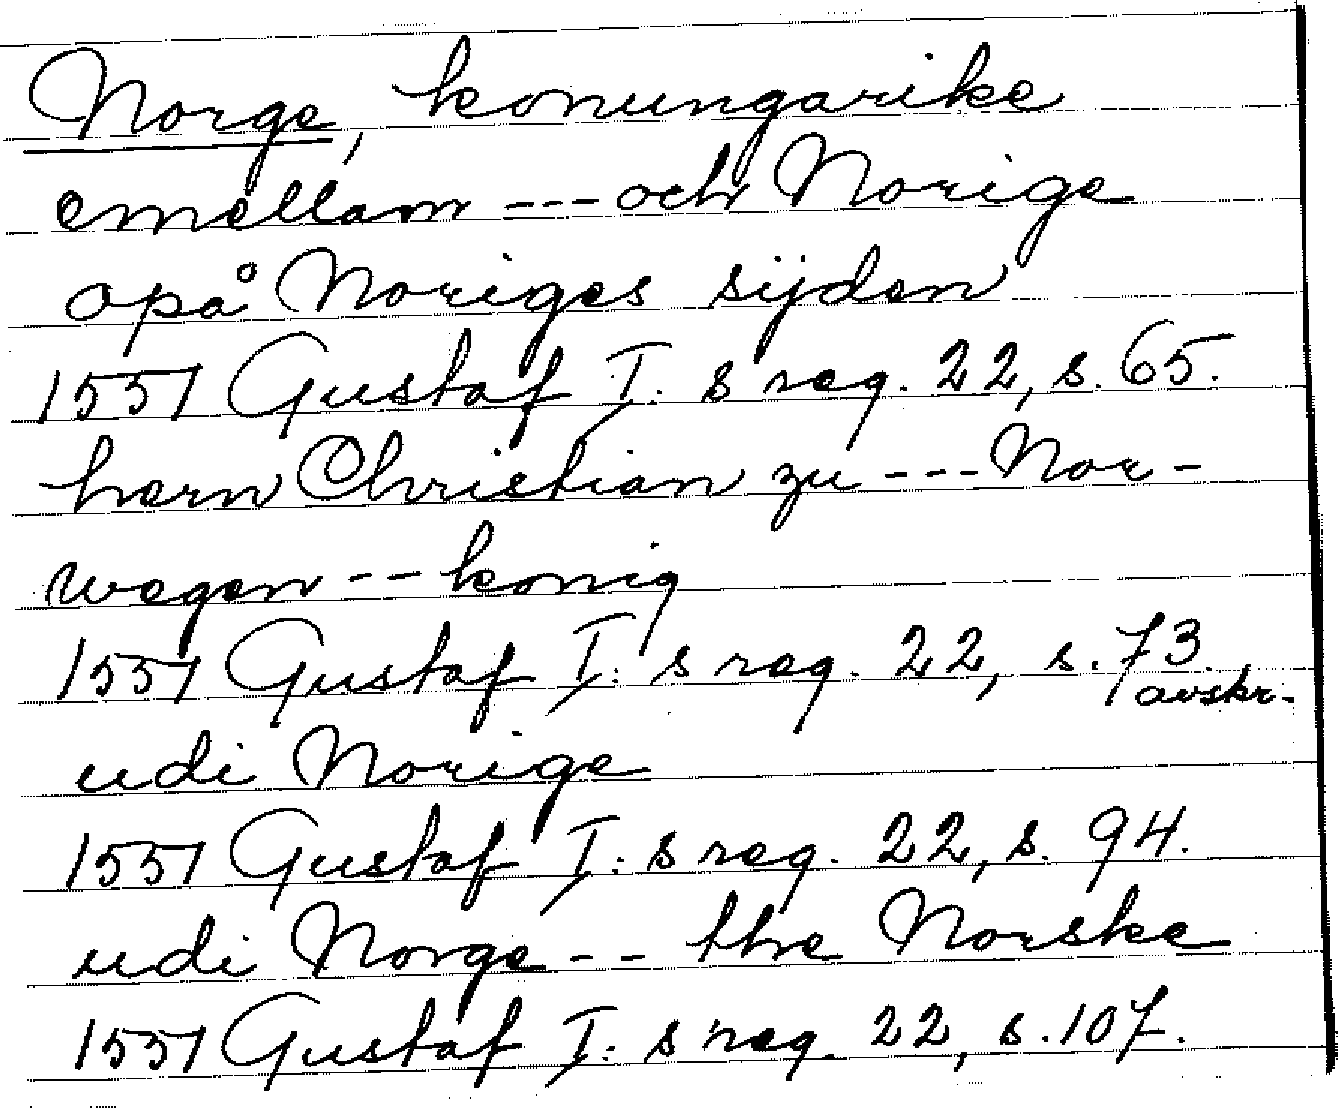 Norge, konungarike
emellam --- och Norige
opå Noriges sijden
1551 Gustaf I:s reg. 22, s. 65.
hern Christian zu --- Nor-
wegen -- konig
1551 Gustaf I:s reg. 22, s. 73.
avskr.
udi Norige
1551 Gustaf I:s reg. 22, s. 94.
udi Norge -- the Norske
1551 Gustaf I:s reg. 22, s. 107.